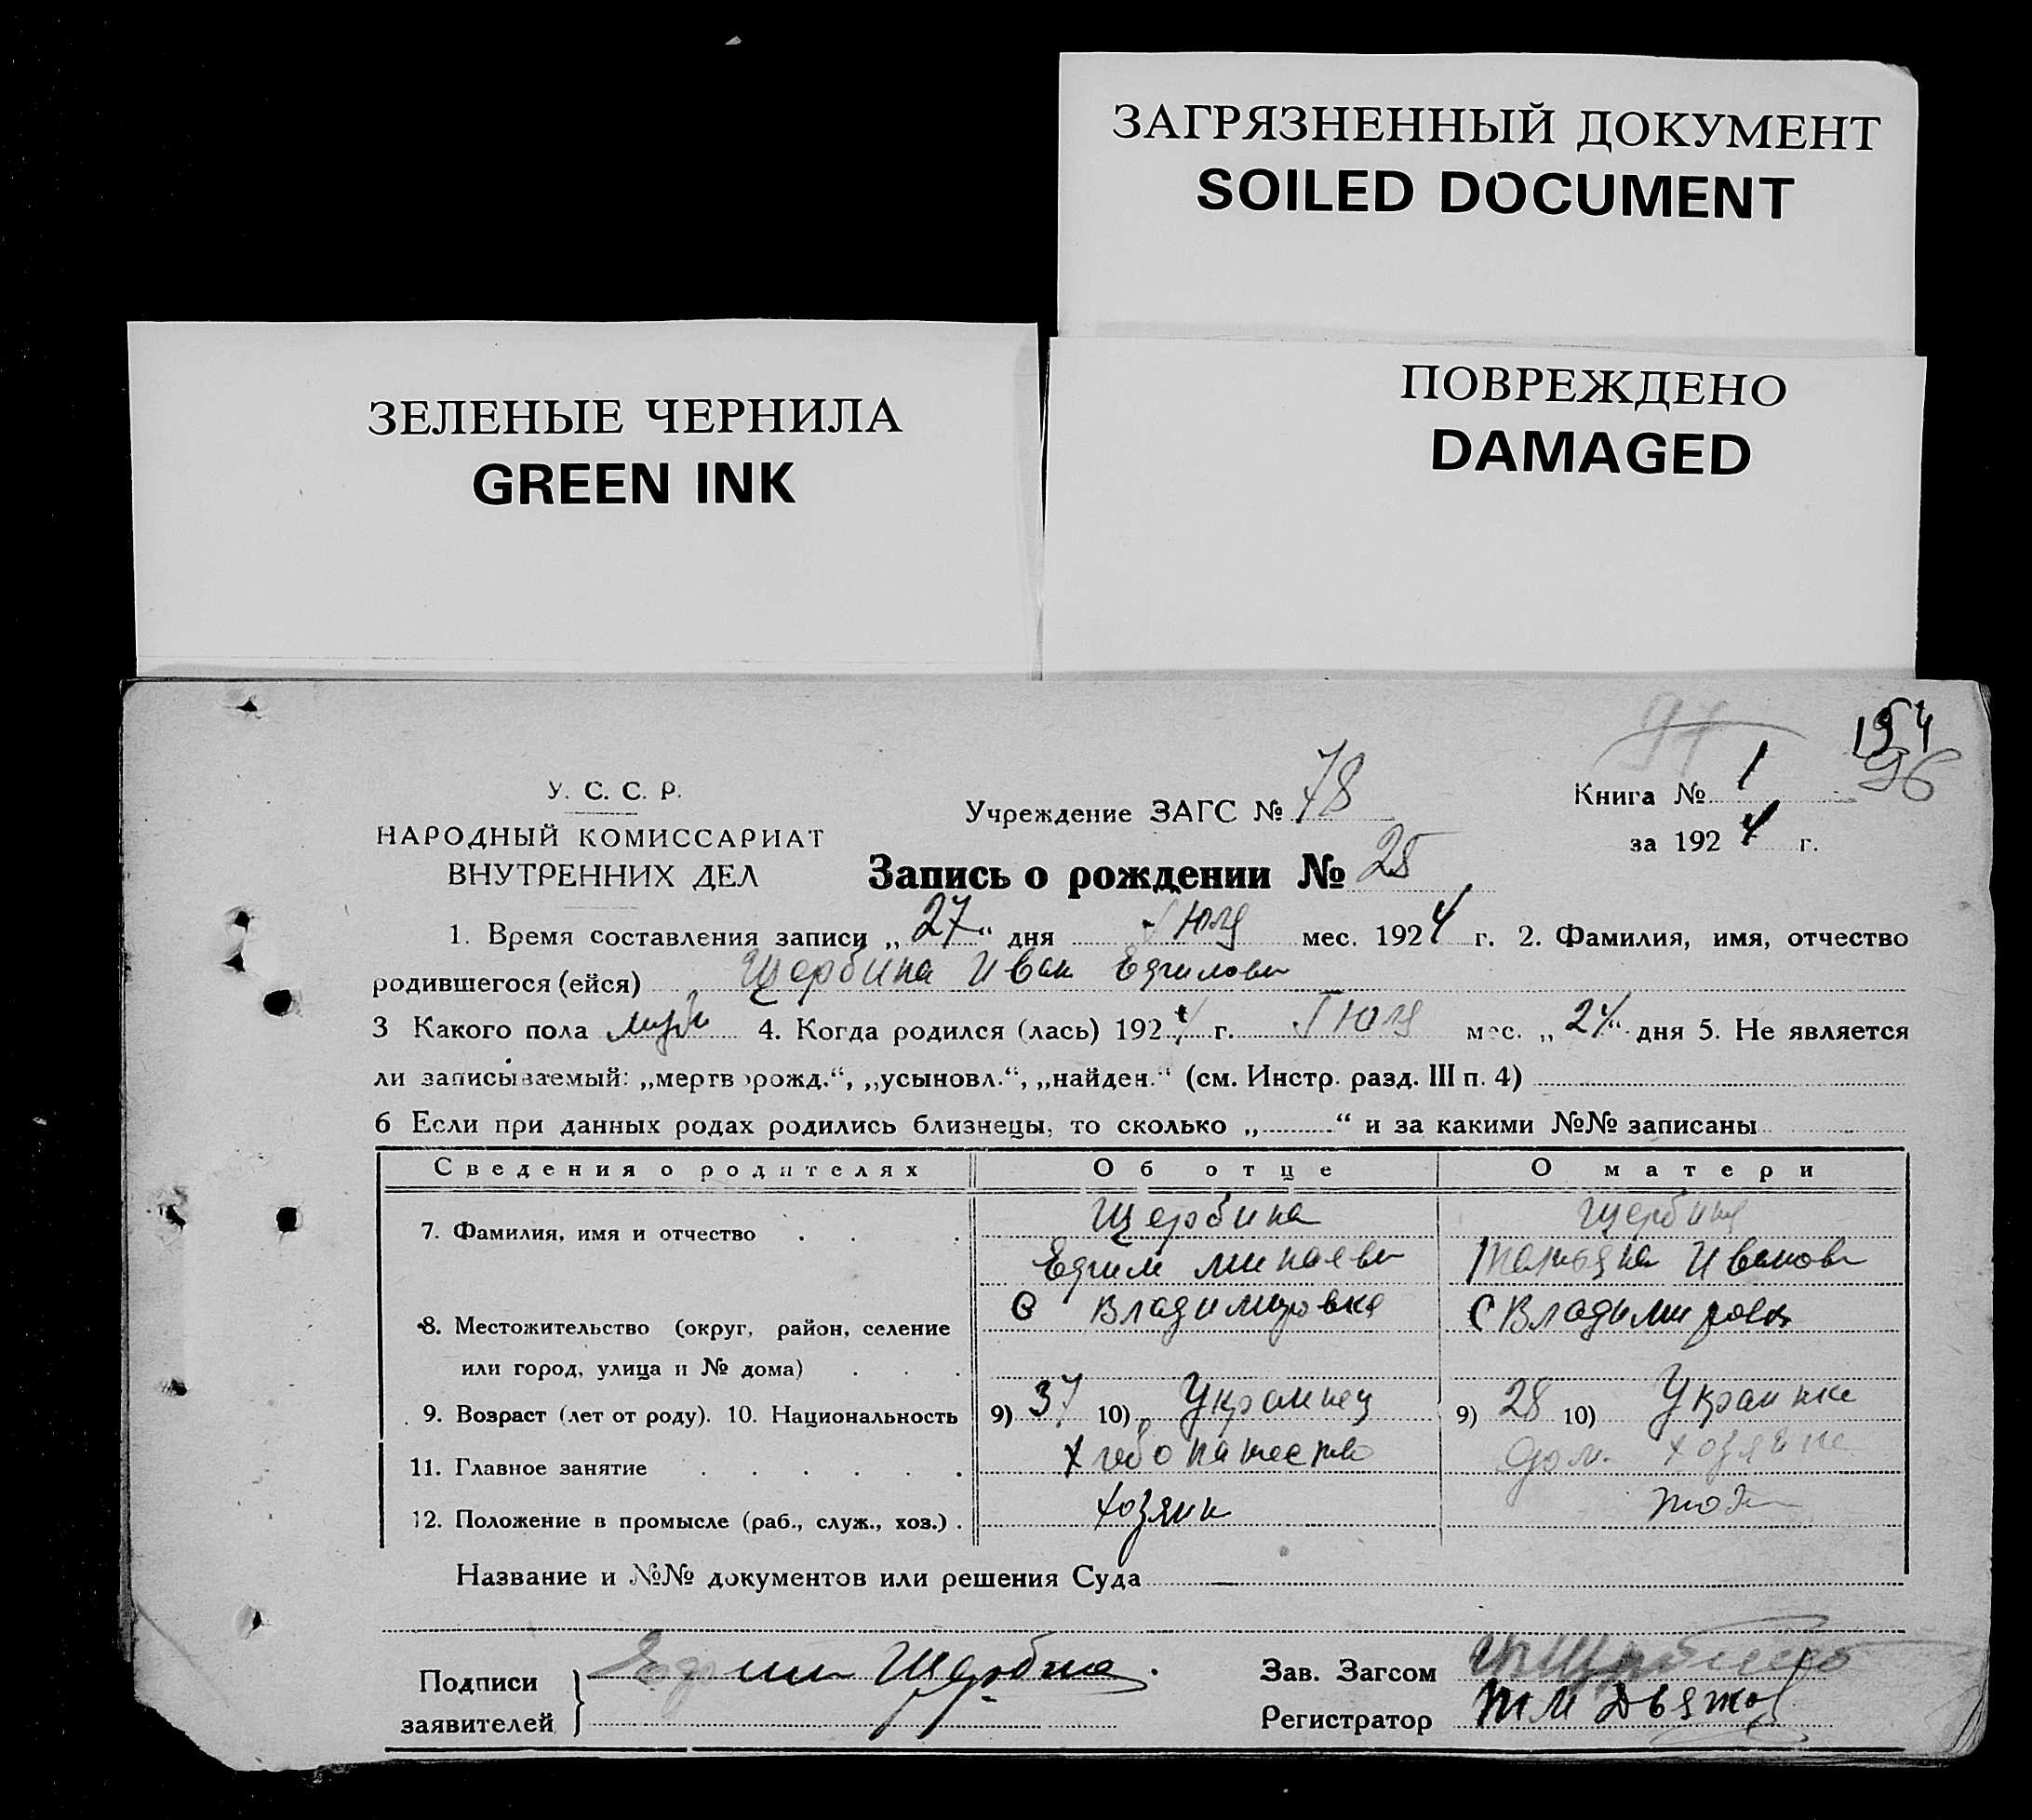 ЗАГРЯЗНЕННЫЙ ДОКУМЕНТ
SOILED DOCUMENT
ЗЕЛЕНЫЕ ЧЕРНИЛА
GREEN INK
ПОВРЕЖДЕНО
DAMAGED
97
194
96
У. С. С. Р.
НАРОДНЫЙ КОМИССАРИАТ
ВНУТРЕННИХ ДЕЛ
Учреждение ЗАГС № 78
Книга № 1
за 1924 г.
Запись о рождении № 25
1. Время составления записи „27“ дня Июля мес. 1924 г. 2. Фамилия, имя, отчество
родившегося (ейся) Щербина Иван Ефимови
3 Какого пола муж 4. Когда родился (лась) 1924 г. Июля мес. „24“ дня 5. Не является
ли записываемый: „мертворожд.“, „усыновл.“, „найден.“ (см. Инстр. разд. III п. 4)
6 Если при данных родах родились близнецы, то сколько „ “ и за какими №№ записаны
Сведения о родителях Об отце О матери
7. Фамилия, имя и отчество Щербина Щербина
Ефим Минаеви Татьяна Иванов
8. Местожительство (округ, район, селение С Владимировка С Владимировк
или город, улица и № дома)
9. Возраст (лет от роду). 10. Национальность 9) 37 10) Украинец 9) 28 10) Украинка
11. Главное занятие Хлебопашество дом. хозяйка
12. Положение в промысле (раб., служ., хоз.) Хозяин
Название и №№ документов или решения Суда
Подписи заявителей Ефим Щербина
Зав. Загсом
Регистратор